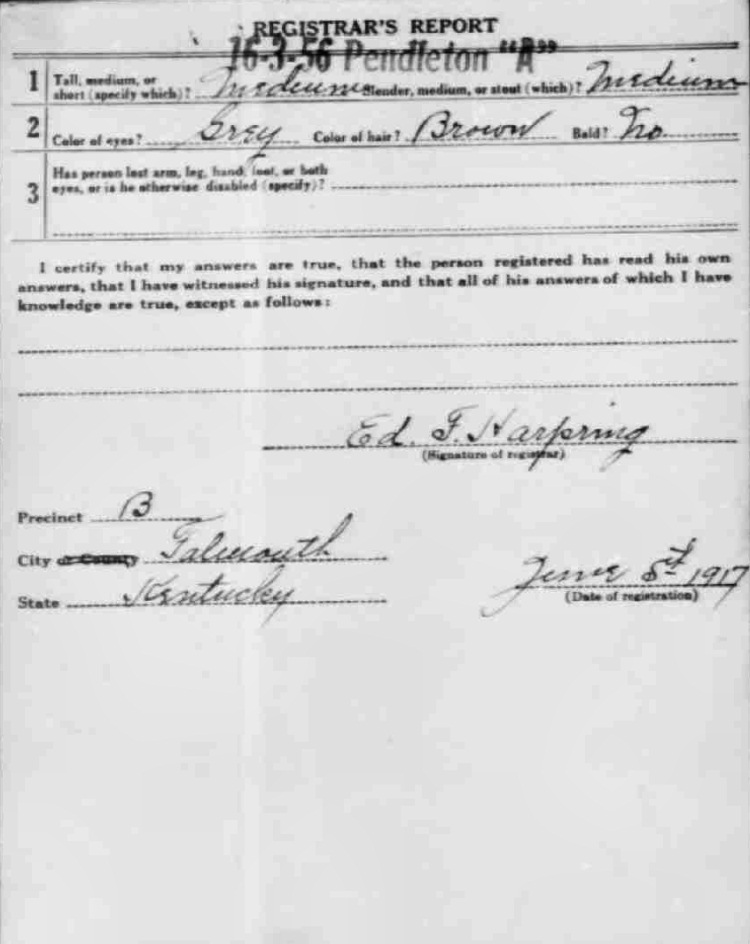 REGISTRAR'S REPORT
16-3-56 Pendleton "A"
1 Tall, medium, or short (specify which)? Medium Slender, medium, or stout (which)? Medium
2 Color of eyes? Grey Color of hair? Brown Bald? No
3 Has person lost arm, leg, hand, foot, or both
eyes, or is he otherwise disabled (specify)?
I certify that my answers are true, that the person registered has read his own
answers, that I have witnessed his signature, and that all of his answers of which I have
knowledge are true, except as follows:
Ed. F. Harpring
(Signature of registrar)
Precinct B
City or County Falmouth
State Kentucky
June 5 1917
(Date of registration)